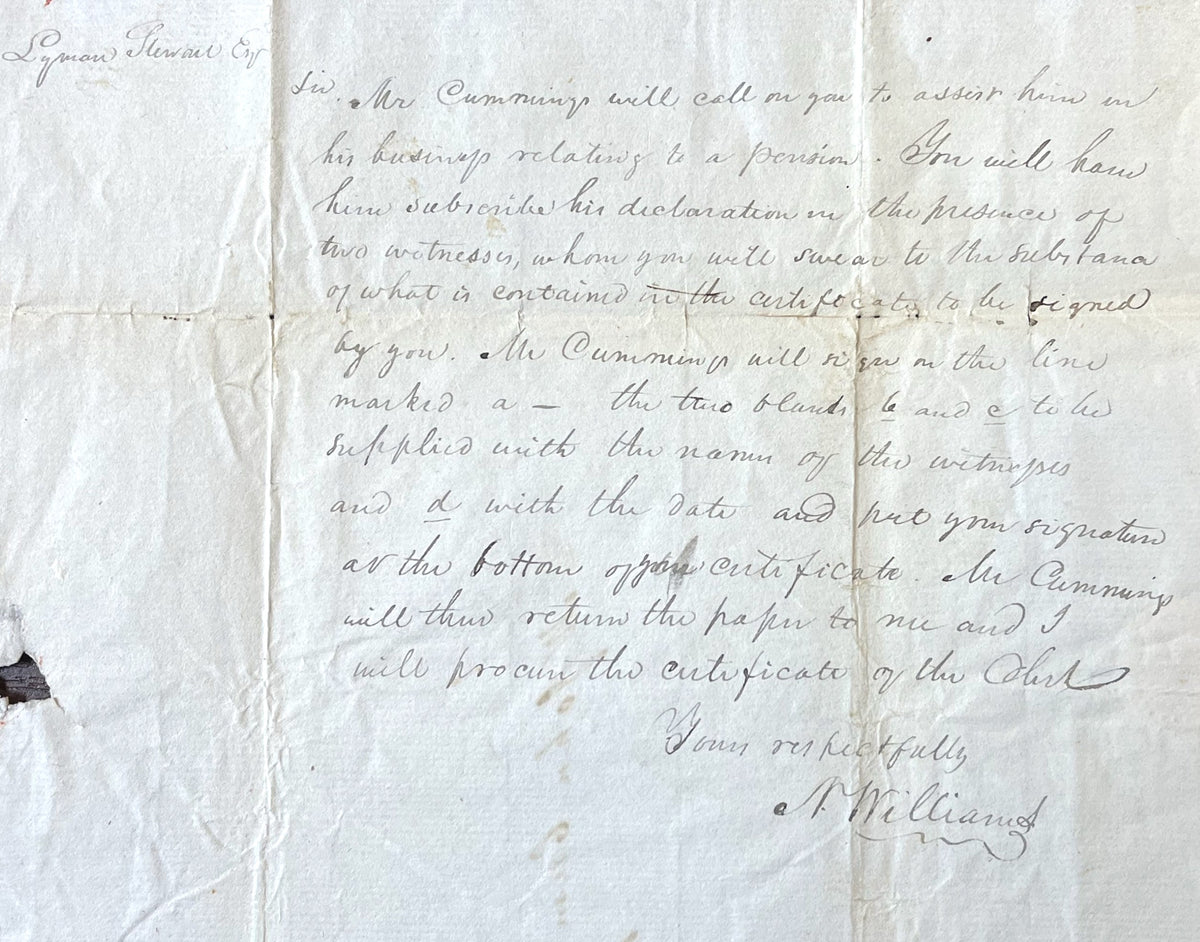 Lyman Stewart Esq
Sir. Mr Cummings will call on you to assist him in
his business relating to a pension. You will have
him subscribe his declaration in the presence of
two witnesses, whom you will swear to the substance
of what is contained in the certificate to be signed
by you. Mr Cummings will sign on the line
marked a — the two blanks b and c to be
supplied with the names of the witnesses
and d with the date and put your signature
at the bottom of your certificate. Mr Cummings
will then return the paper to me and I
will procure the certificate of the Clerk
Yours respectfully
N. Williams